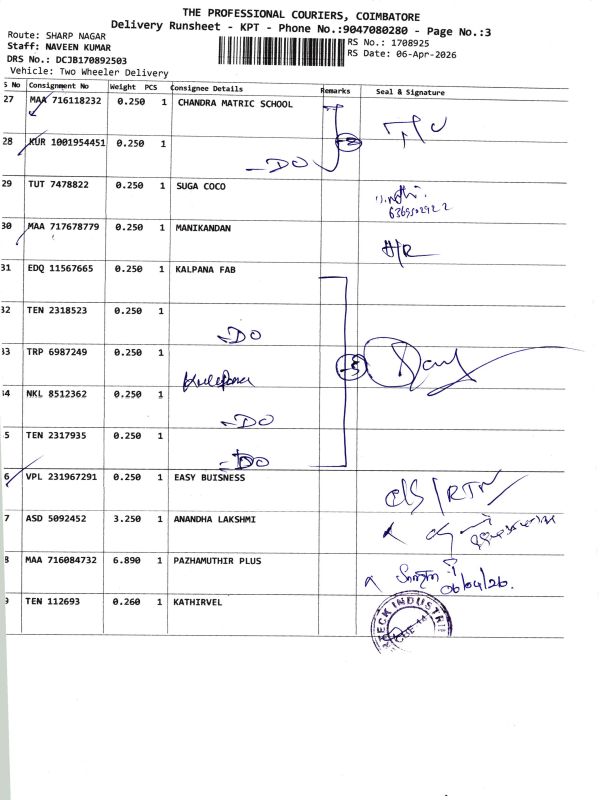 THE PROFESSIONAL COURIERS, COIMBATORE
Delivery Runsheet - KPT - Phone No.:9047080280 - Page No.:3
Route: SHARP NAGAR
Staff: NAVEEN KUMAR
DRS No.: DCJB170892503
Vehicle: Two Wheeler Delivery
RS No.: 1708925
RS Date: 06-Apr-2026
S No Consignment No Weight PCS Consignee Details Remarks Seal & Signature
27 MAA 716118232 0.250 1 CHANDRA MATRIC SCHOOL
28 KUR 1001954451 0.250 1
-DO
29 TUT 7478822 0.250 1 SUGA COCO
30 MAA 717678779 0.250 1 MANIKANDAN
31 EDQ 11567665 0.250 1 KALPANA FAB
32 TEN 2318523 0.250 1
-DO
33 TRP 6987249 0.250 1
34 NKL 8512362 0.250 1
-DO
5 TEN 2317935 0.250 1
-DO
6 VPL 231967291 0.250 1 EASY BUISNESS
7 ASD 5092452 3.250 1 ANANDHA LAKSHMI
8 MAA 716084732 6.890 1 PAZHAMUTHIR PLUS
06/04/26.
9 TEN 112693 0.260 1 KATHIRVEL
TECK INDUSTRI